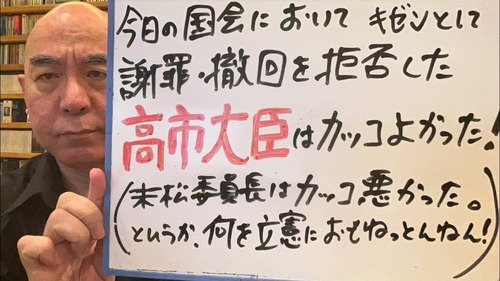 今日の国会において キゼンとして
謝罪・撤回を拒否した
高市大臣はカッコよかった!
(末松委員長はカッコ悪かった。
というか、何を立憲におもねっとんねん!)